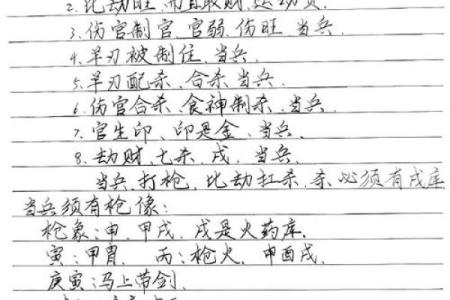 2.比劫旺,而且取财,运动员.
3.伤官制官,官弱、伤旺,当兵
4.羊刃被制住,当兵.
5.羊刃配杀、合杀当兵.
6.伤官合杀、食神制杀、当兵
7.官生印、印是金、当兵.
8.劫财、七杀、戌、当兵.
当兵,打枪,比劫扛杀,杀必须有戌库
当兵须有枪像:
枪象:申、甲戌、戌是火药库.
寅:甲胄、丙:枪火、申酉戌.
庚寅:马上带剑.